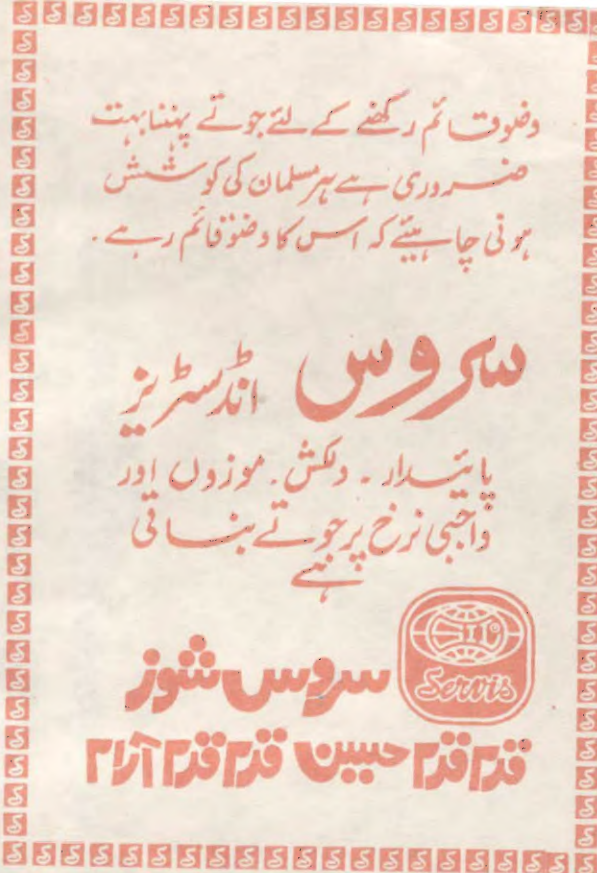 وضو قائم رکھنے کے لئے جوتے پہننا بہت
ضروری ہے ہر مسلمان کی کوشش
ہونی چاہیئے کہ اس کا وضو قائم رہے۔
سروس انڈسٹریز
پائیدار۔ دلکش۔ موزوں اور
واجبی نرخ پر جوتے بناتی
ہے
Servis
سروس شوز
قدم قدم حسین قدم قدم آرام